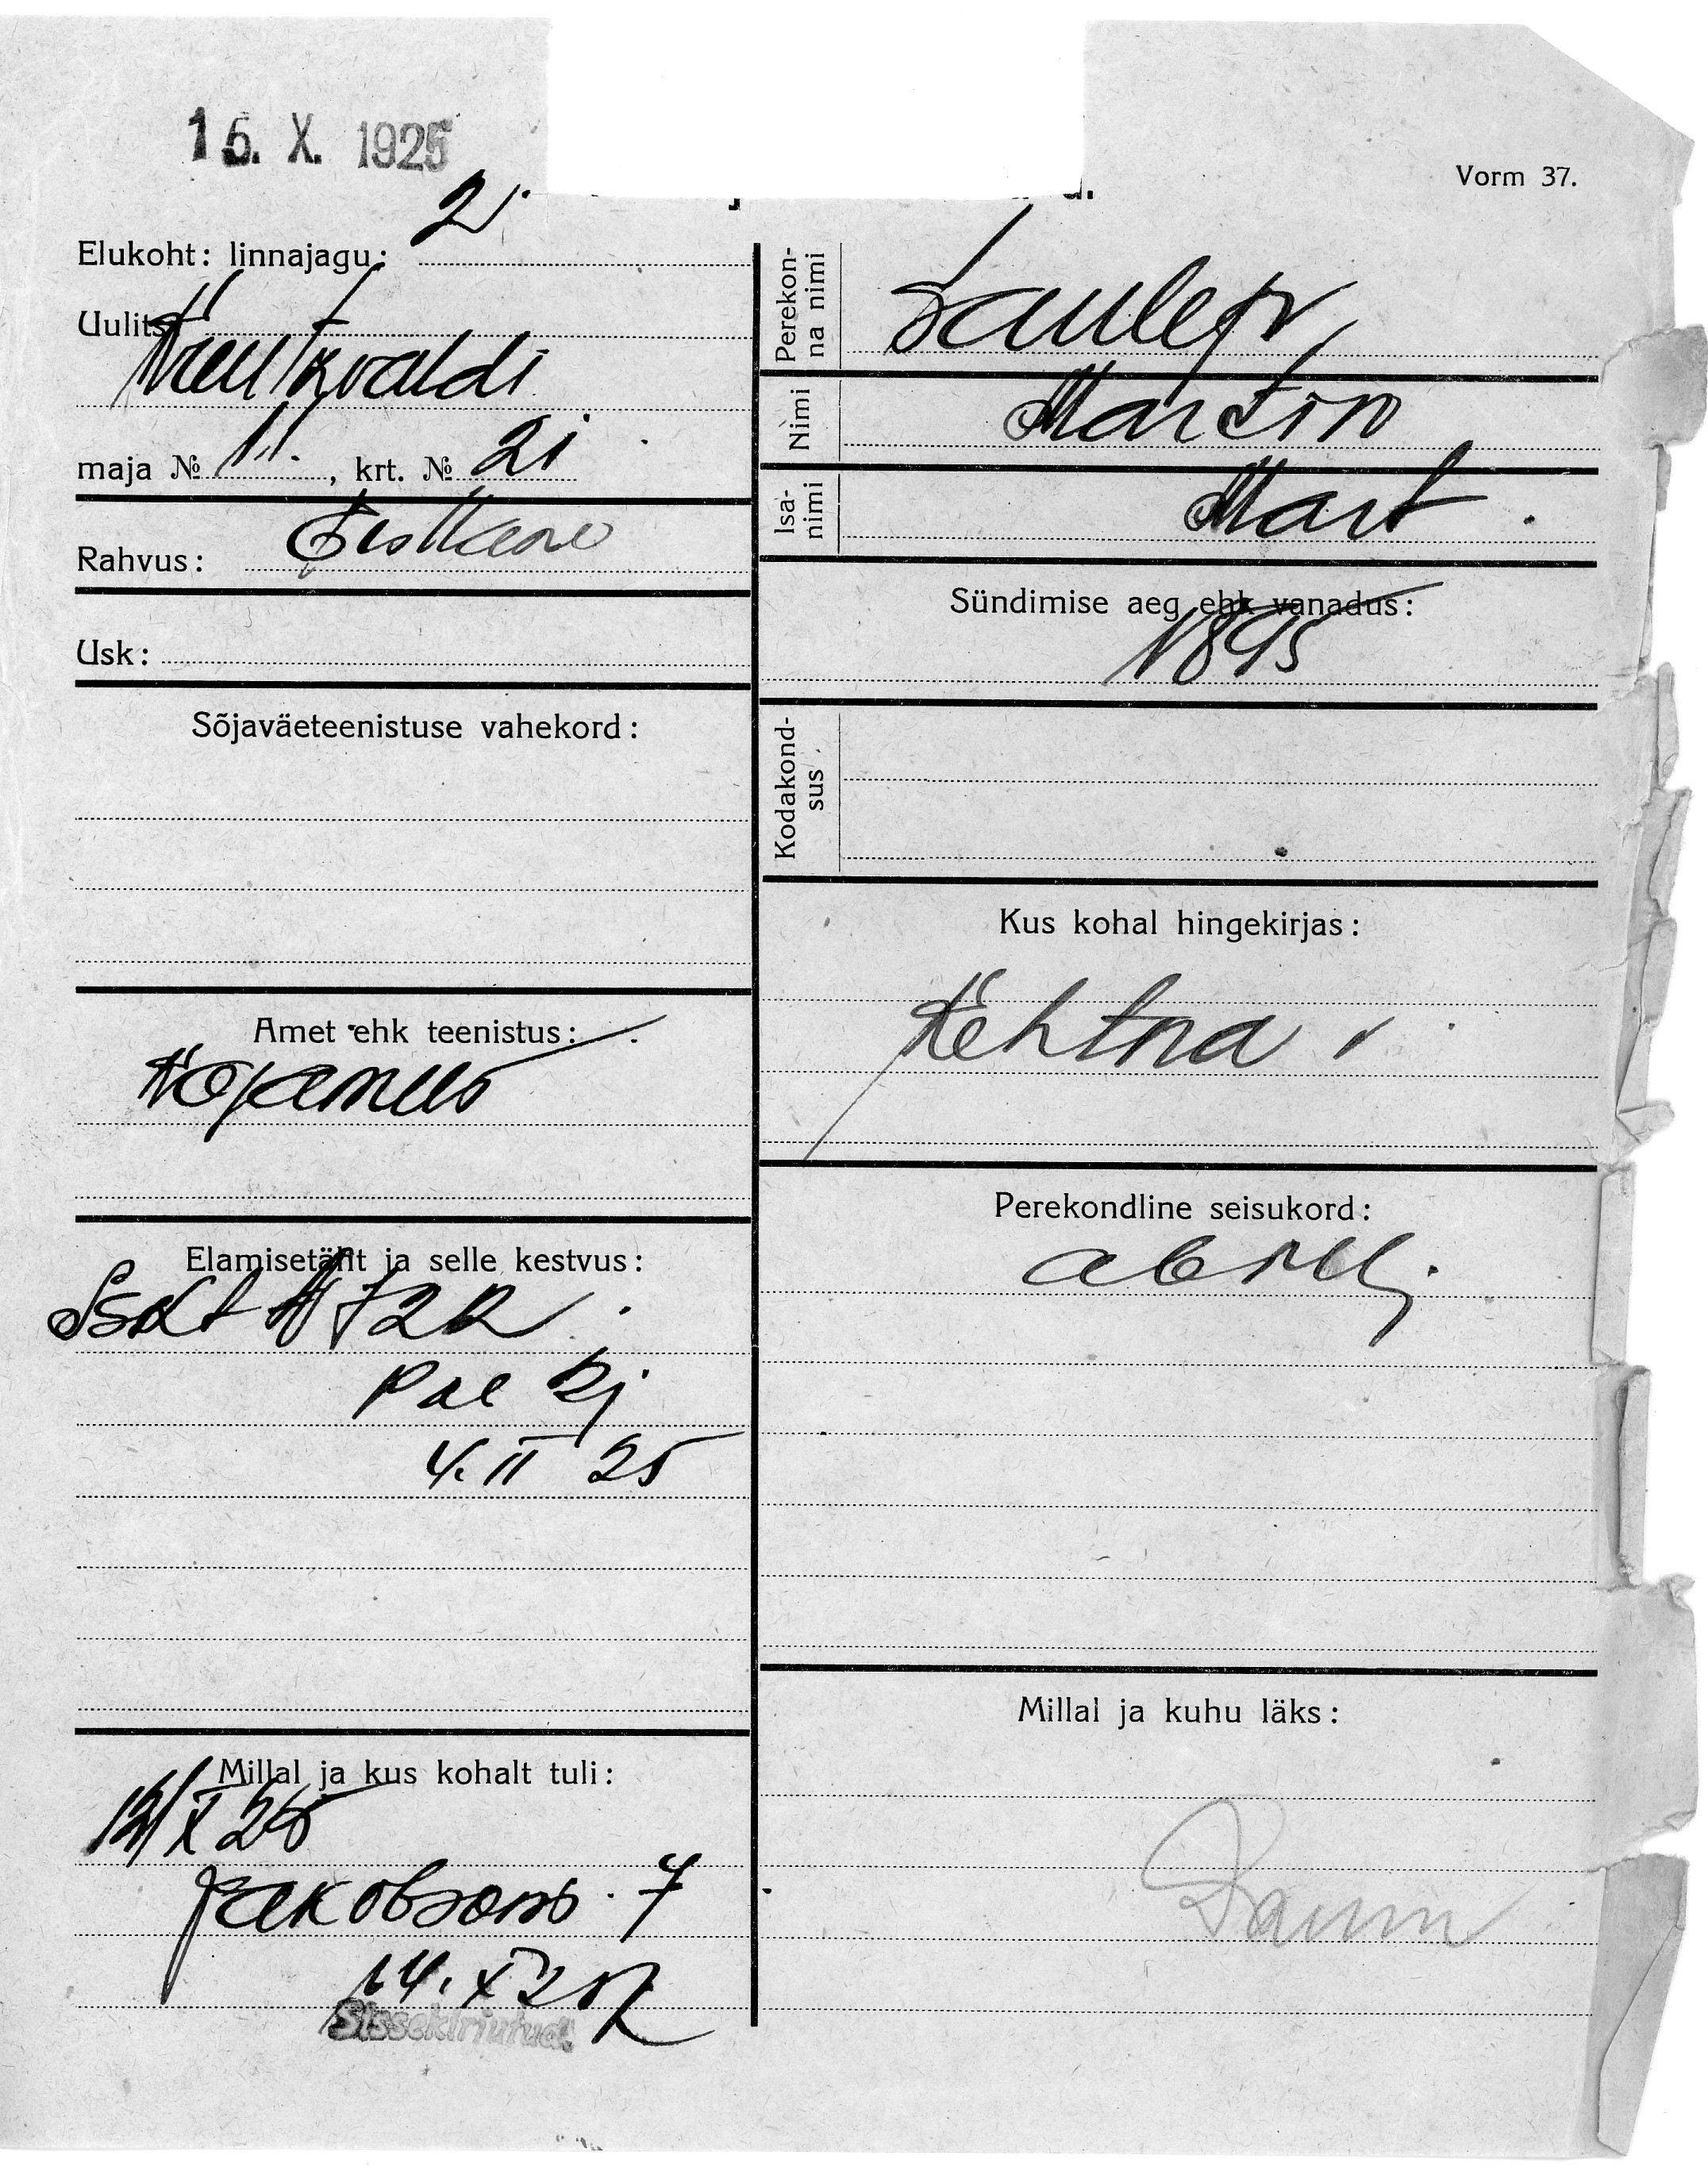 15. X. 1925
Vorm 37.
Elukoht: linnajagu: 2
Uulits
Kreutzvaldi
maja № 11., krt. № 21
Rahvus: Eestlane
Usk:
Sõjaväeteenistuse vahekord:
Amet ehk teenistus:
Kojamees
Elamisetäht ja selle kestvus:
4. II 25
Millal ja kus kohalt tuli:
12/X 25
Jakobsoni 7
14. X 25
Sissekirjutud.
Perekonna nimi
Nimi Martin
Isanimi Mart
Sündimise aeg ehk vanadus:
1895
Kodakondsus
Kus kohal hingekirjas:
Kehtna v.
Perekondline seisukord:
abielj.
Millal ja kuhu läks: